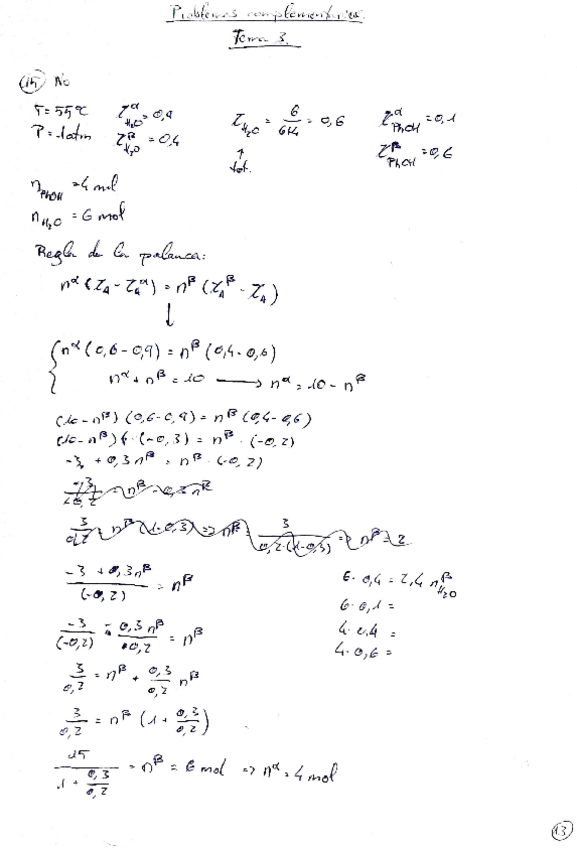 Problemas complementarios.
Tema 3.
15 No
T=55ºC χ^α_H₂O=0,9 χ_H₂O = 6/(6+4) = 0,6 χ^α_PhOH=0,1
P=1atm χ^β_H₂O=0,4 ↑ tot. χ^β_PhOH=0,6
n_PhOH=4 mol
n_H₂O=6 mol
Regla de la palanca:
n^α(χ_A-χ_A^α)=n^β(χ_A^β-χ_A)
↓
{ n^α(0,6-0,9)=n^β(0,4-0,6)
n^α+n^β=10 → n^α=10-n^β
(10-n^β)(0,6-0,9)=n^β(0,4-0,6)
(10-n^β)·(-0,3)=n^β·(-0,2)
-3+0,3n^β=n^β·(-0,2)
(-3+0,3n^β)/(-0,2)=n^β 6·0,4=2,4 n^β_H₂O
6·0,1=
-3/(-0,2) - 0,3n^β/0,2 = n^β 4·0,4=
4·0,6=
3/0,2=n^β+0,3/0,2 n^β
3/0,2=n^β(1+0,3/0,2)
15/(1+0,3/0,2)=n^β=6 mol ⇒ n^α=4 mol
13